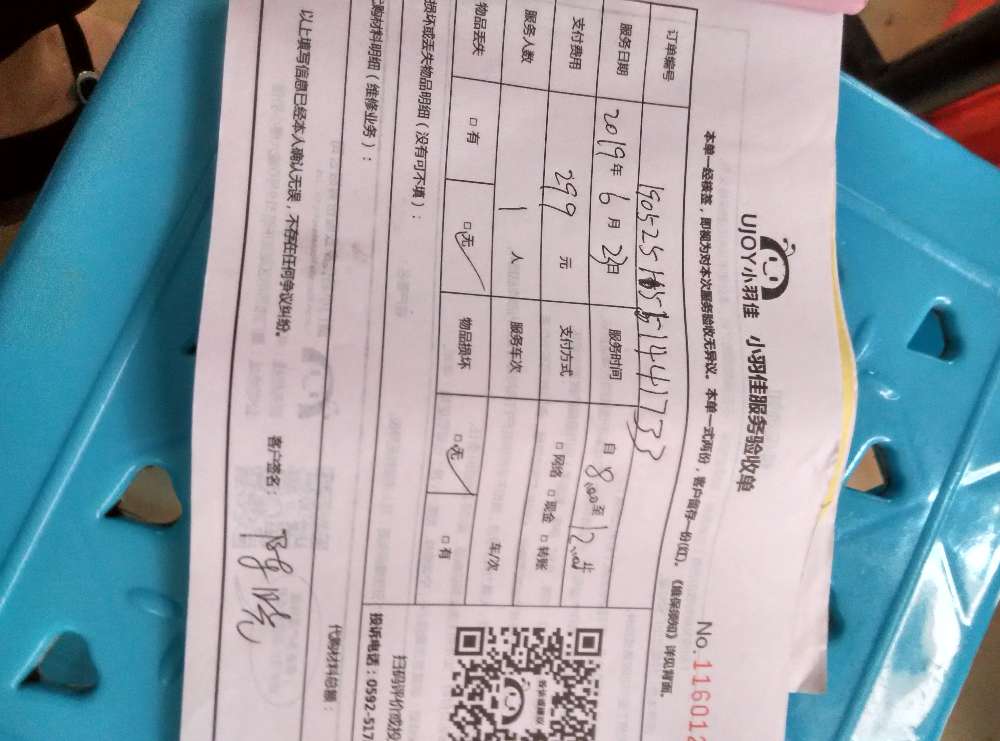 UJOY小羽佳 小羽佳服务验收单
No.116012
本单一经核签，即视为对本次服务验收无异议。本单一式两份，客户留存一份(红)。《维保须知》详见背面。
订单编号
服务日期 2019年6月23日 服务时间 自8:00至12:00止
支付费用 299元 支付方式 □网络 □现金 □转账
服务人数 1人 服务车次 车/次
物品丢失 □有 □无 物品损坏 □无 □有
损坏或丢失物品明细（没有可不填）：
购材料明细（维修业务）：
代购材料总额：
以上填写信息已经本人确认无误，不存在任何争议纠纷。 客户签名：
投诉或建议
扫码评价或投
投诉电话：0592-517